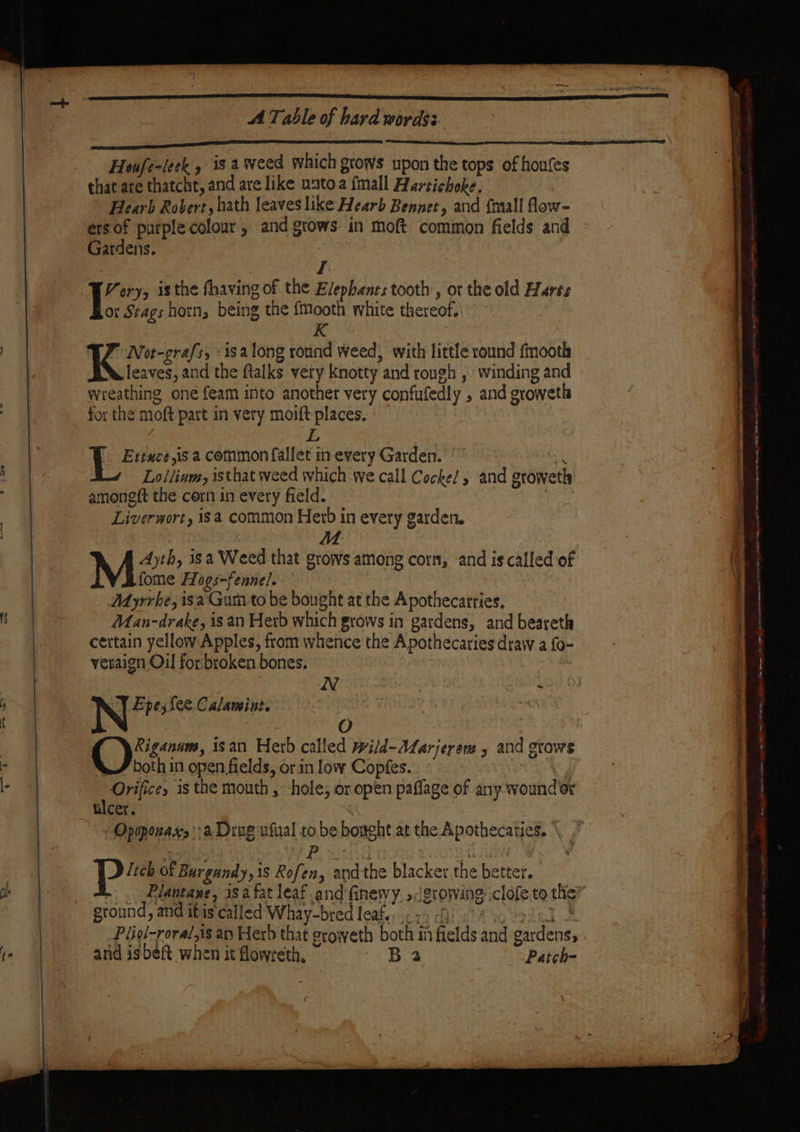 A Table of hard words:
Houſe-leek , is a weed which grows upon the tops of houſes
that are thatcht, and are like unto a ſmall Hartichoke.
Hearb Robert, hath leaves like Hearb Bennet, and ſmall flow-
ers of purple colour , and grows in moſt common fields and
Gardens.
I
IVory, is the ſhaving of the Elephants tooth , or the old Harts
or Stags horn, being the ſmooth white thereof.
K
KNot-graſs, is a long round weed, with little round ſmooth
leaves, and the ſtalks very knotty and rough , winding and
wreathing one ſeam into another very confuſedly , and groweth
for the moſt part in very moiſt places.
L
LEttuce, is a common ſallet in every Garden.
Lollium, is that weed which we call Cockel , and groweth
amongſt the corn in every field.
Liverwort, is a common Herb in every garden.
M
MAyth, is a Weed that grows among corn, and is called of
ſome Hogs-fennel.
Myrrhe, is a Gum to be bought at the Apothecarries.
Man-drake, is an Herb which grows in gardens, and beareth
certain yellow Apples, from whence the Apothecaries draw a ſo-
veraign Oil for broken bones.
N
NEpe, ſee Calamint.
O
ORiganum, is an Herb called Wild-Marjerom , and grows
both in open fields, or in low Copſes.
Orifice, is the mouth , hole, or open paſſage of any wound or
ulcer.
Opoponax, a Drug uſual to be bought at the Apothecaries.
P
PItch of Burgundy, is Roſen, and the blacker the better.
Plantane, is a fat leaf and ſinewy , growing cloſe to the
ground, and it is called Whay-bred leaf.
Pliol-roral, is an Herb that groweth both in fields and gardens,
and is beſt when it flowreth. B 2 Patch-